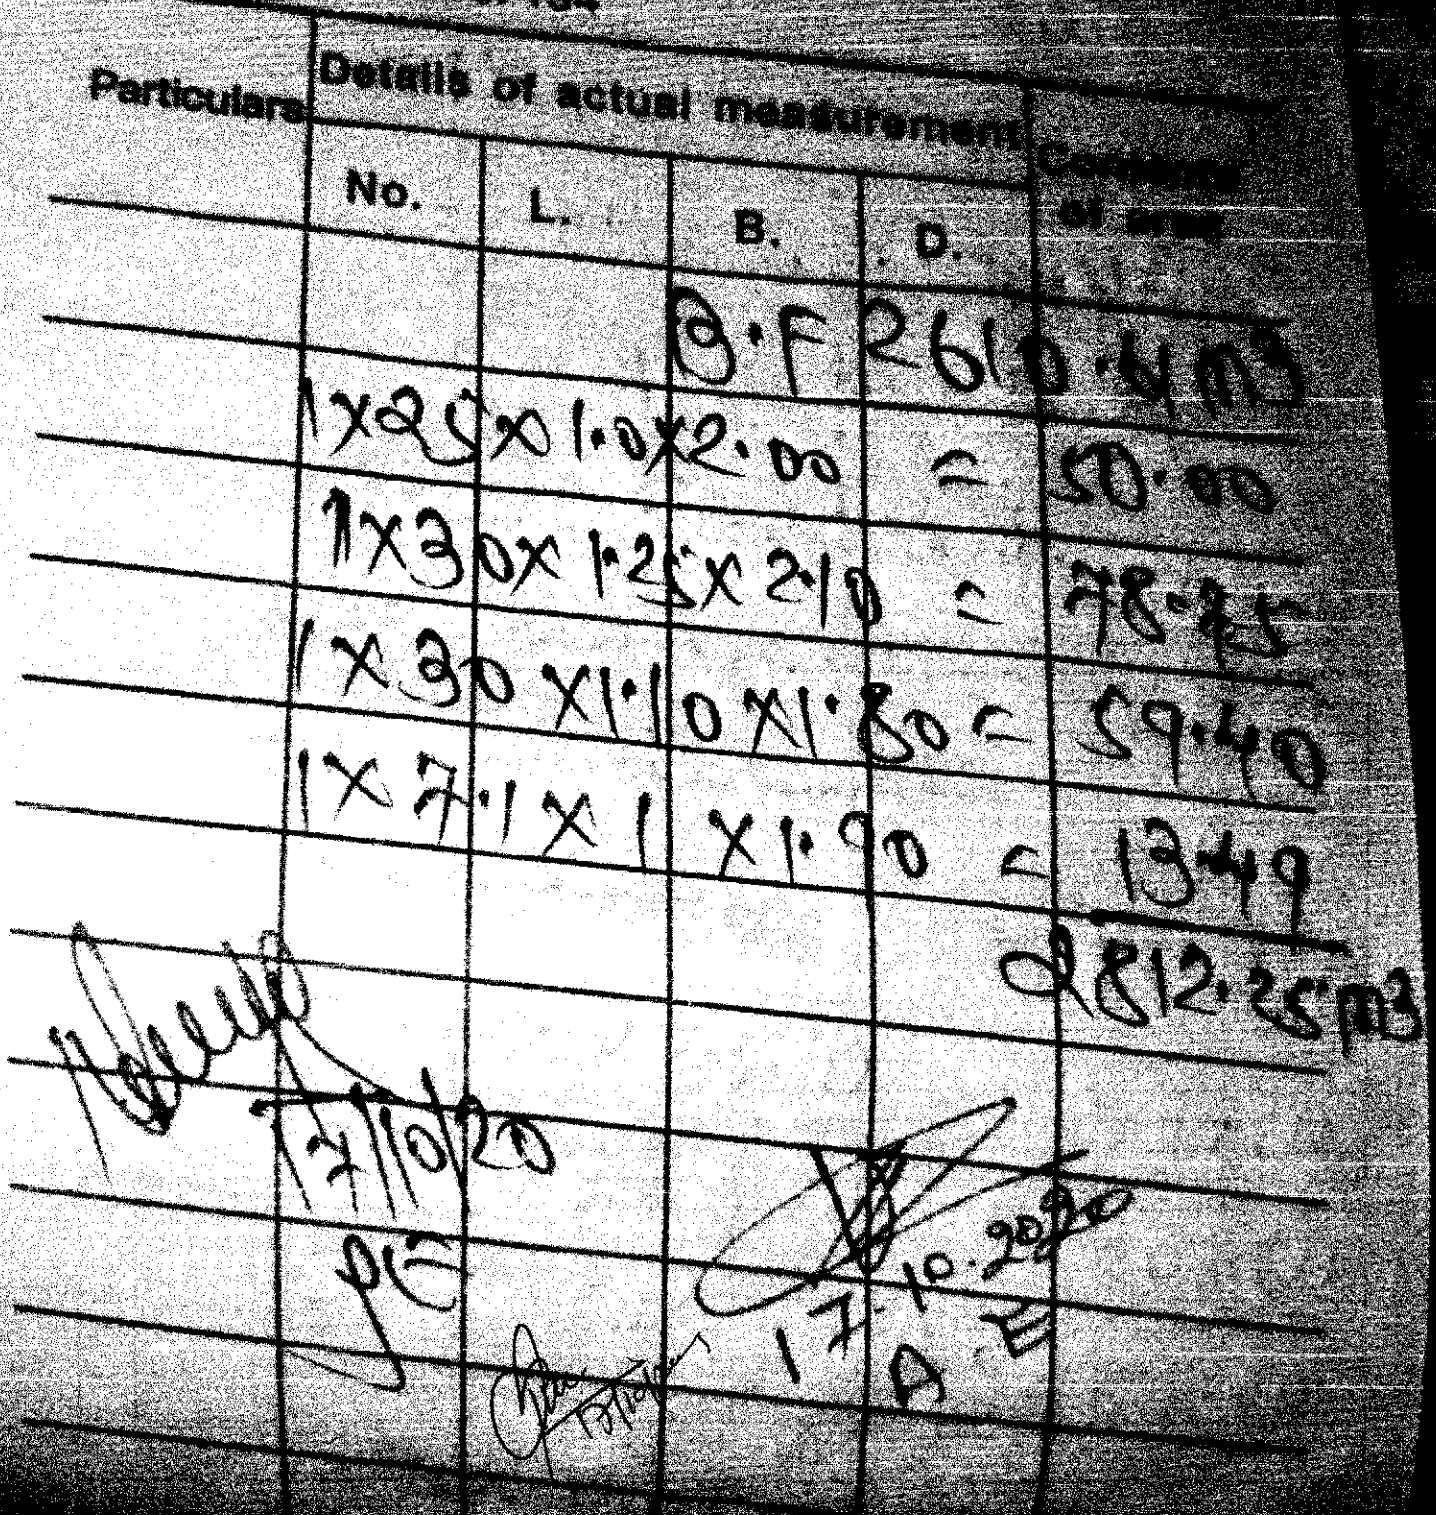 Particulars Details of actual measurement Contents of area
No. L. B. D.
B.F 2610.4 m3
1x25x1.0x2.00 = 50.00
1x30x1.25x2.10 = 78.75
1x30x1.10x1.80 = 59.40
1x7.1x1x1.90 = 13.49
2812.25 m3
17/10/20
17.10.2020
A.E